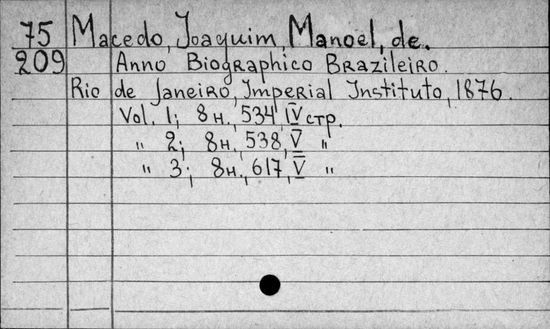 75 Macedo, Joaquim Manoel, de.
209 Anno Biographico Brazileiro.
Rio de Janeiro, Imperial Instituto, 1876.
Vol. 1; 8н., 534, IV стр.
„ 2; 8н., 538, V „
„ 3; 8н., 617, V „